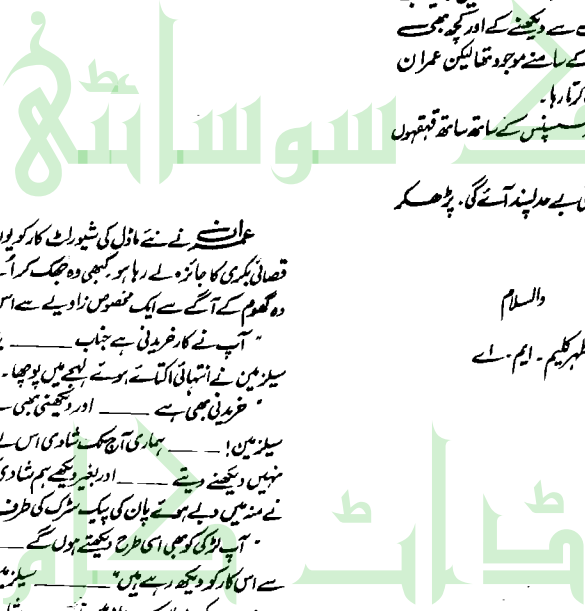 سے دیکھنے کے اور کچھ بھی
کے سامنے موجود تھا لیکن عمران
کرتا رہا۔
سسپنس کے ساتھ ساتھ قہقہوں
بے حد پسند آئے گی۔ پڑھ کر
والسلام
مظہر کلیم۔ ایم۔ اے
عمران نے نئے ماڈل کی شیورلٹ کار کو یوں
قصائی بکری کا جائزہ لے رہا ہو۔ کبھی وہ جھک کر
وہ گھوم کے آگے سے ایک مخصوص زاویے سے اس
" آپ نے کار خریدنی ہے جناب ـــــ
سیلزمین نے انتہائی اکتائے ہوئے لہجے میں پوچھا۔
" خریدنی بھی ہے ـــــ اور دیکھنی بھی
سیلزمین! ـــــ ہماری آج تک شادی اس لئے
نہیں دیکھنے دیتے ـــــ اور بغیر دیکھے ہم شادی
نے منہ میں دبے ہوئے پان کی پیک سڑک کی طرف
" آپ لڑکی کو بھی اسی طرح دیکھتے ہوں گے ـــــ
سے اس کار کو دیکھ رہے ہیں" ـــــ سیلزمین
سوسائٹی
ڈاٹ کام